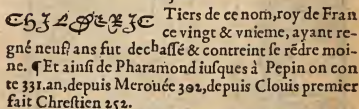 CHILDERIC Tiers de ce nom, roy de Fran
ce vingt & vnieme, ayant re-
gné neuf ans fut dechaſſé & contreint ſe rẽdre moi-
ne. ¶Et ainſi de Pharamond iuſques à Pepin on con
te 331.an, depuis Merouée 302, depuis Clouis premier
fait Chreſtien 252.